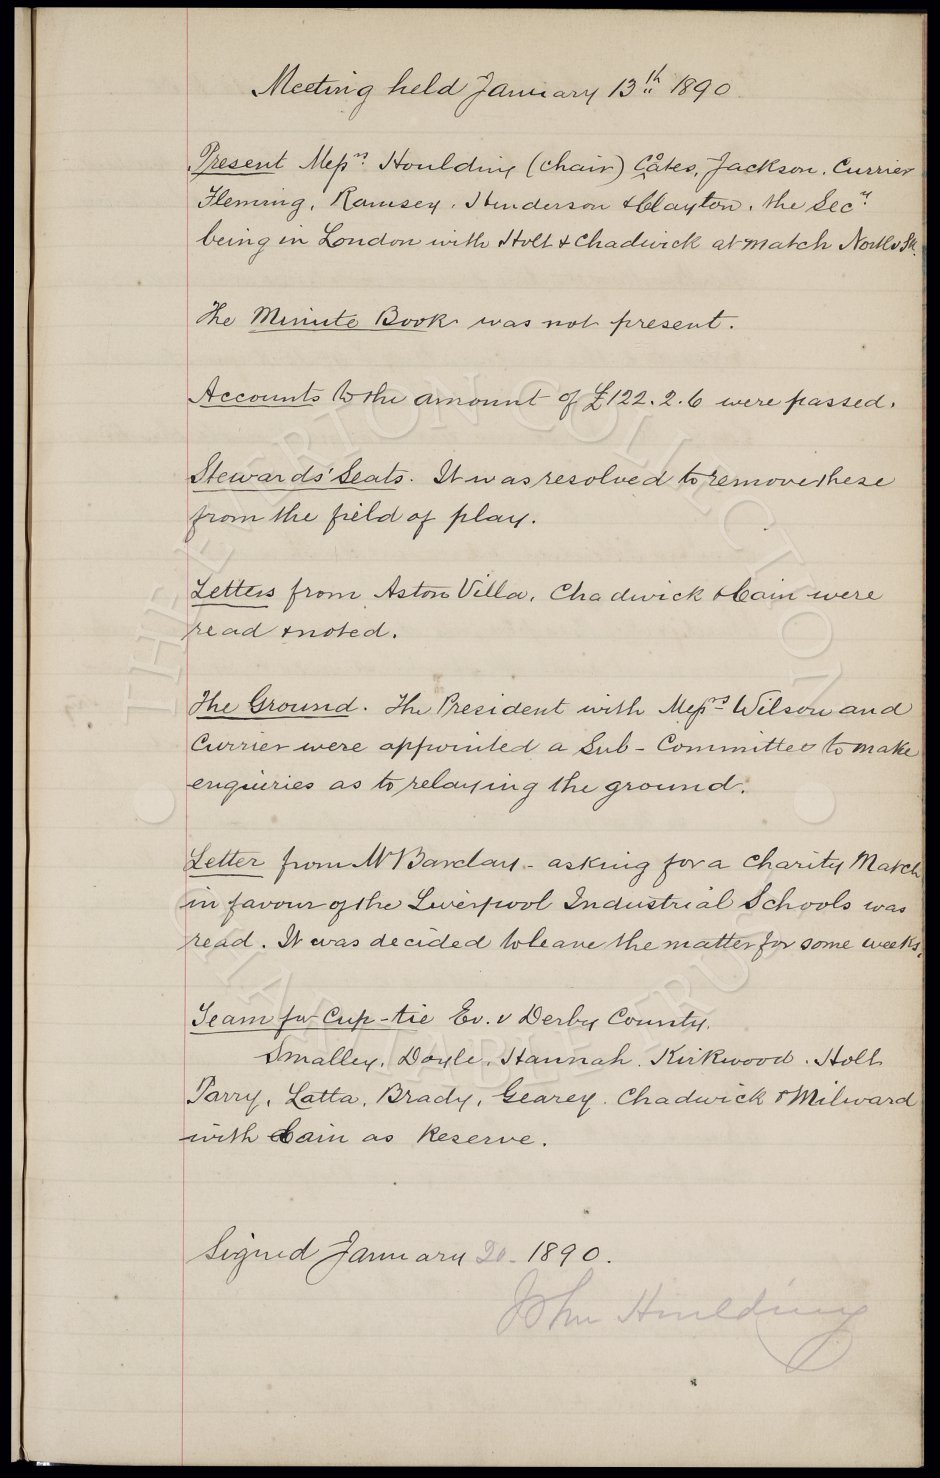 Meeting held January 13th 1890
Present Messrs Houlding (chair) Coates, Jackson, Currier
Fleming, Ramsey, Henderson & Clayton, the Secy
being in London with Holt & Chadwick at match North v Sth.
The Minute Book was not present.
Accounts to the amount of £122.2.6 were passed.
Stewards' Seats. It was resolved to remove these
from the field of play.
Letters from Aston Villa, Chadwick & Cain were
read & noted.
The Ground. The President with Messrs Wilson and
Currier were appointed a Sub-Committee to make
enquiries as to relaying the ground.
Letter from Mr Barclay - asking for a Charity Match
in favour of the Liverpool Industrial Schools was
read. It was decided to leave the matter for some weeks.
Team for Cup-tie Ev. v Derby County.
Smalley, Doyle, Hannah, Kirkwood, Holt
Parry, Latta, Brady, Gearey, Chadwick & Milward
with Cain as Reserve.
Signed January 20. 1890.
John Houlding
THE EVERTON COLLECTION
CHARITABLE TRUST